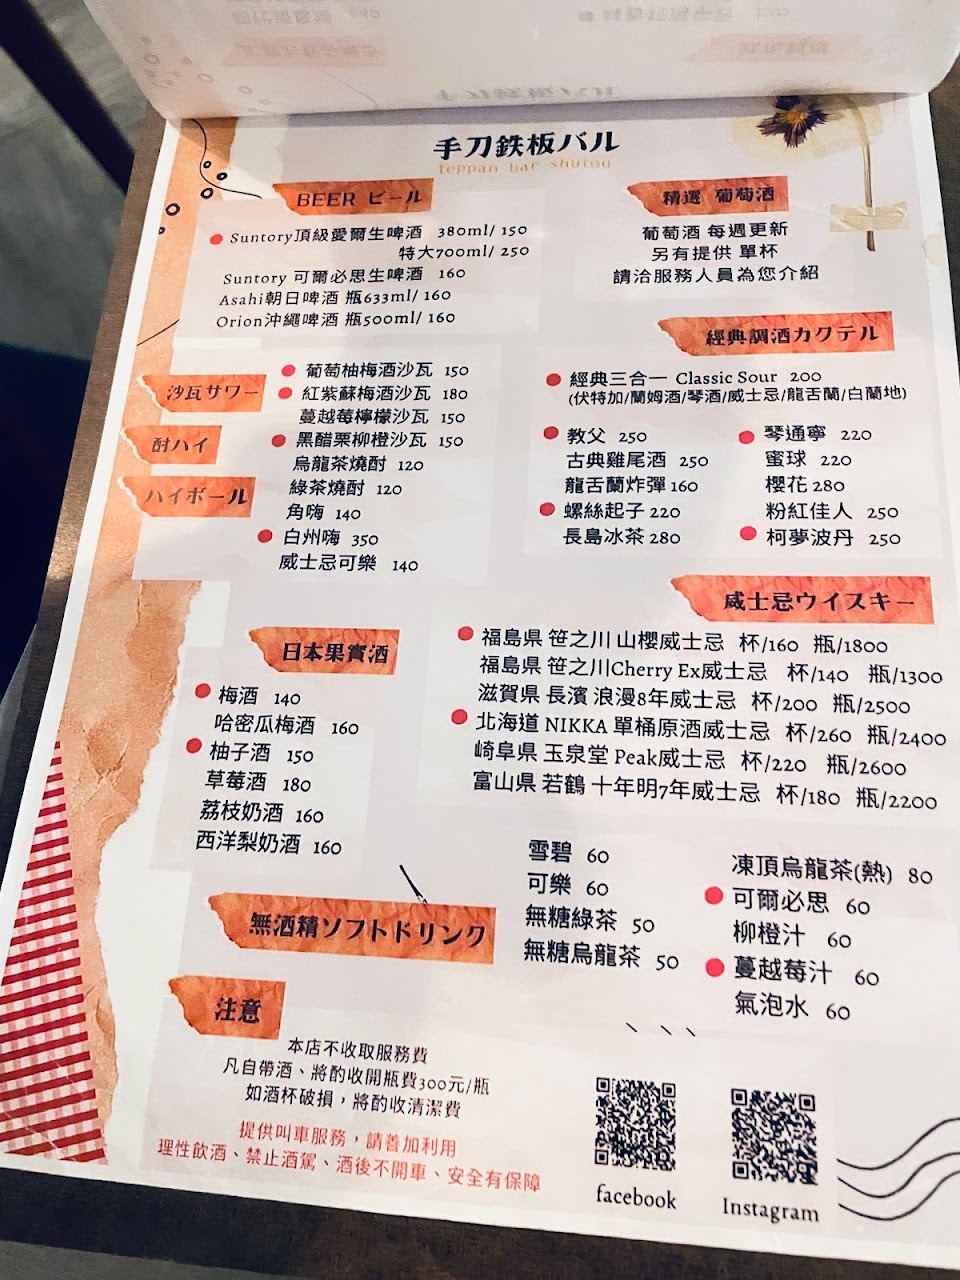 手刀鉄板バル
teppan bar shutou
BEER ビール
Suntory頂級愛爾生啤酒 380ml/ 150
特大700ml/ 250
Suntory 可爾必思生啤酒 160
Asahi朝日啤酒 瓶633ml/ 160
Orion沖繩啤酒 瓶500ml/ 160
精選 葡萄酒
葡萄酒 每週更新
另有提供 單杯
請洽服務人員為您介紹
沙瓦サワー
酎ハイ
ハイボール
葡萄柚梅酒沙瓦 150
紅紫蘇梅酒沙瓦 180
蔓越莓檸檬沙瓦 150
黑醋栗柳橙沙瓦 150
烏龍茶燒酎 120
綠茶燒酎 120
角嗨 140
白州嗨 350
威士忌可樂 140
經典調酒カクテル
經典三合一 Classic Sour 200
(伏特加/蘭姆酒/琴酒/威士忌/龍舌蘭/白蘭地)
教父 250
古典雞尾酒 250
龍舌蘭炸彈 160
螺絲起子 220
長島冰茶 280
琴通寧 220
蜜球 220
櫻花 280
粉紅佳人 250
柯夢波丹 250
威士忌ウイスキー
福島県 笹之川 山櫻威士忌 杯/160 瓶/1800
福島県 笹之川Cherry Ex威士忌 杯/140 瓶/1300
滋賀県 長濱 浪漫8年威士忌 杯/200 瓶/2500
北海道 NIKKA 單桶原酒威士忌 杯/260 瓶/2400
崎阜県 玉泉堂 Peak威士忌 杯/220 瓶/2600
富山県 若鶴 十年明7年威士忌 杯/180 瓶/2200
日本果實酒
梅酒 140
哈密瓜梅酒 160
柚子酒 150
草莓酒 180
荔枝奶酒 160
西洋梨奶酒 160
無酒精ソフトドリンク
雪碧 60
可樂 60
無糖綠茶 50
無糖烏龍茶 50
凍頂烏龍茶(熱) 80
可爾必思 60
柳橙汁 60
蔓越莓汁 60
氣泡水 60
注意
本店不收取服務費
凡自帶酒、將酌收開瓶費300元/瓶
如酒杯破損，將酌收清潔費
提供叫車服務，請善加利用
理性飲酒、禁止酒駕、酒後不開車、安全有保障
facebook
Instagram